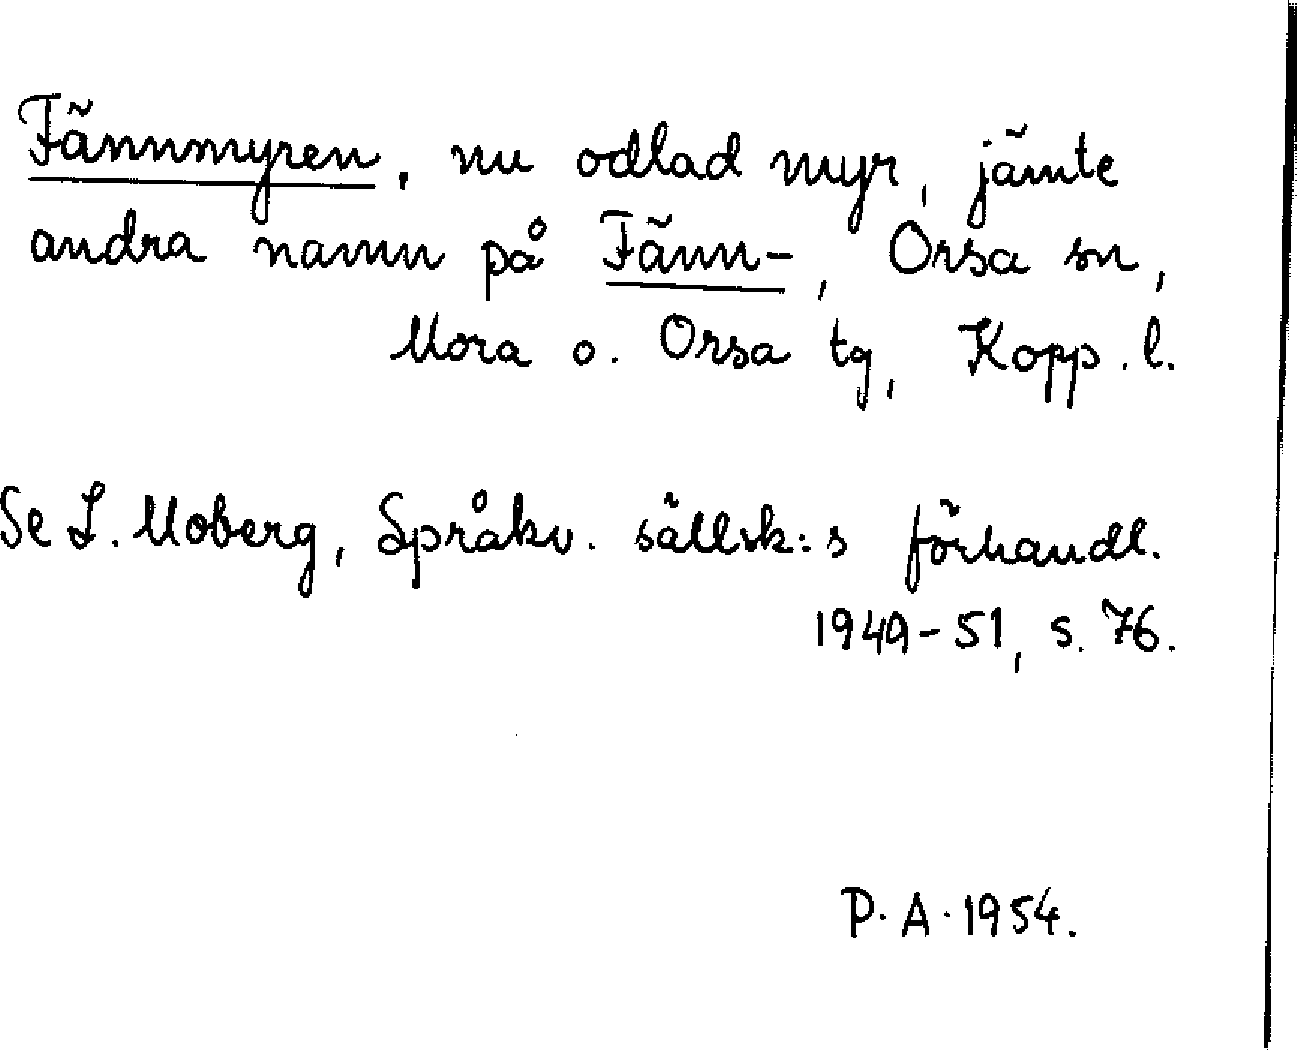 Fännmyren, nu odlad myr, jämte
andra namn på Fänn-, Orsa sn,
Mora o. Orsa tg, Kopp. l.
Se L. Moberg, Språkv. sällsk:s förhandl.
1949-51, s. 76.
P. A. 1954.